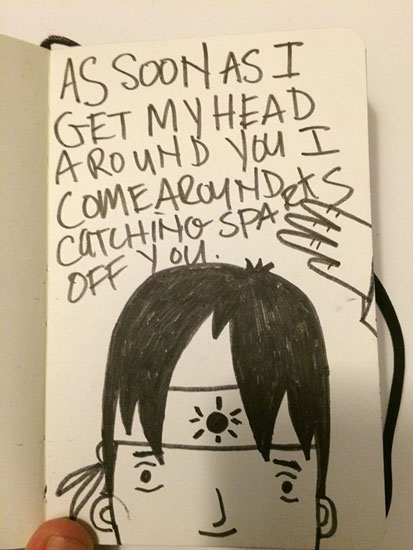 AS SOON AS I
GET MY HEAD
AROUND YOU I
COME AROUND
CATCHING SPARKS
OFF YOU.